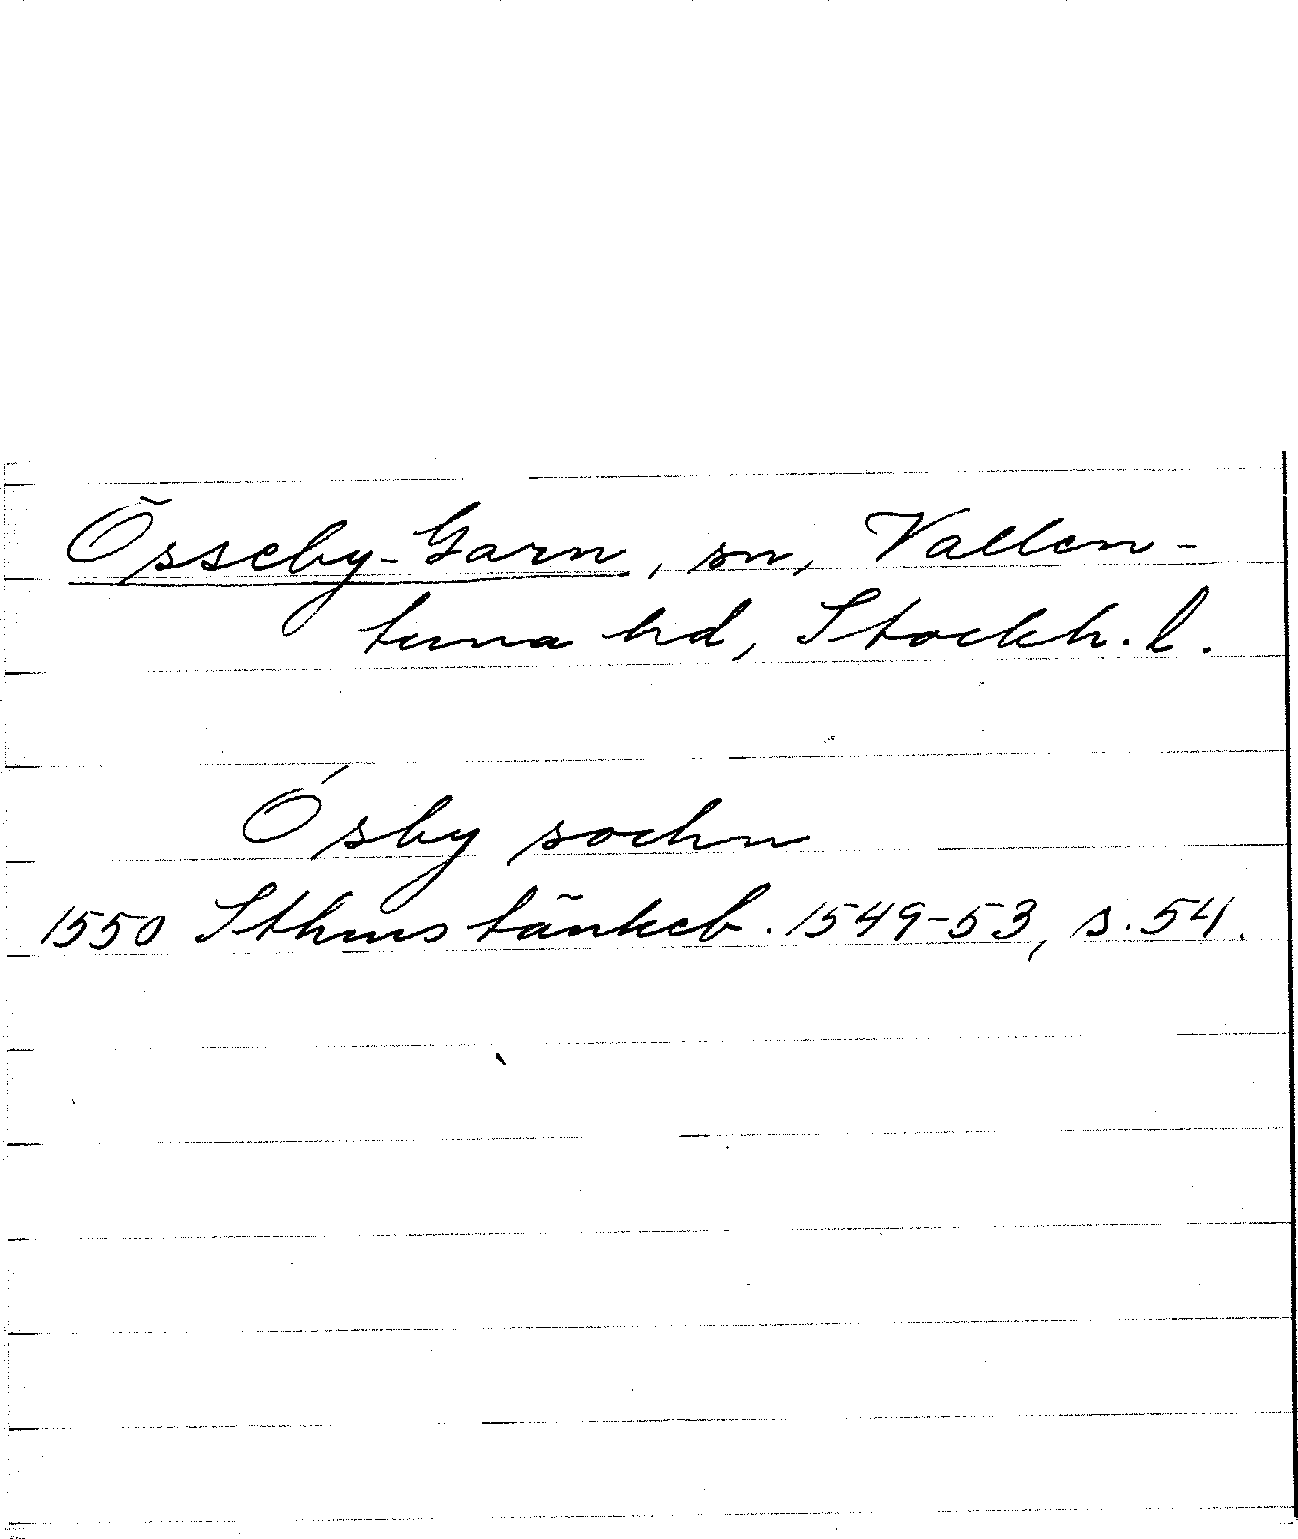 Össeby-Garn, sn, Vallen-
tuna hd, Stockh. l.
Ósby sochn
1550 Sthms tänkeb. 1549-53, s. 54.